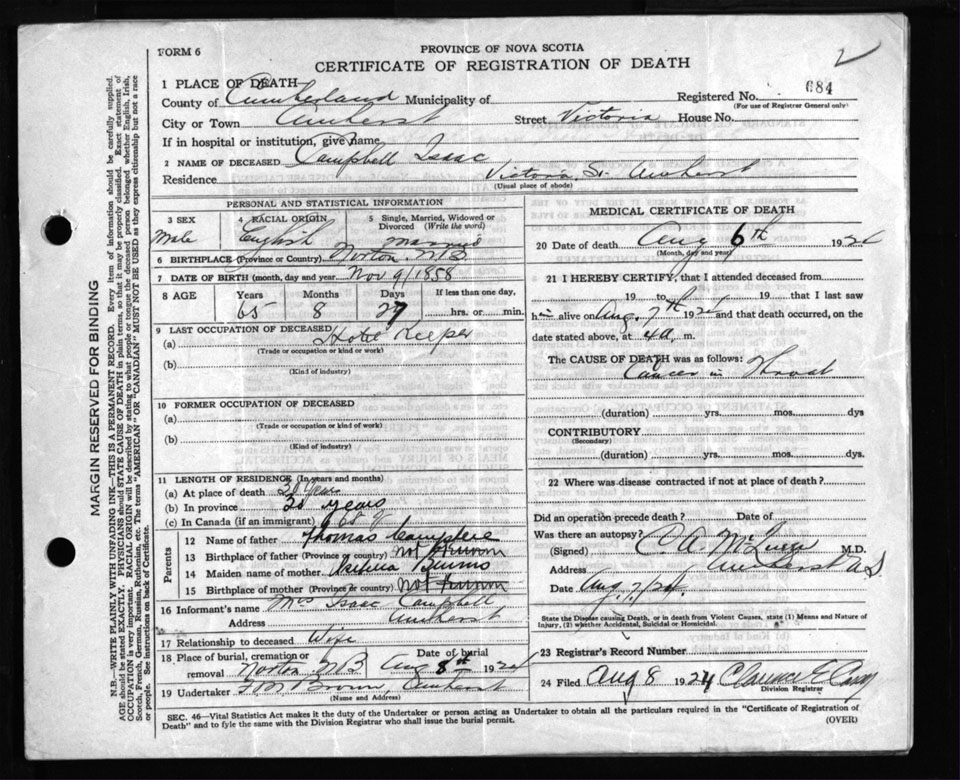 FORM 6
PROVINCE OF NOVA SCOTIA
CERTIFICATE OF REGISTRATION OF DEATH
2
1 PLACE OF DEATH
County of Cumberland Municipality of
Registered No. 684
(For use of Registrar General only)
City or Town Amherst Street Victoria House No.
If in hospital or institution, give name
2 NAME OF DECEASED Campbell Isaac
Residence Victoria St. Amherst
(Usual place of abode)
PERSONAL AND STATISTICAL INFORMATION
3 SEX 4 RACIAL ORIGIN 5 Single, Married, Widowed or Divorced (Write the word)
Male English Married
6 BIRTHPLACE (Province or Country) Norton, N.B.
7 DATE OF BIRTH (month, day and year Nov 9/1858
8 AGE Years Months Days If less than one day,
65 8 27 hrs. or min.
9 LAST OCCUPATION OF DECEASED
(a) Hotel Keeper
(Trade or occupation or kind or work)
(b)
(Kind of industry)
10 FORMER OCCUPATION OF DECEASED
(a)
(Trade or occupation or kind or work)
(b)
(Kind of industry)
11 LENGTH OF RESIDENCE (In years and months)
(a) At place of death years
(b) In province 30 years
(c) In Canada (if an immigrant)
Parents
12 Name of father Thomas
13 Birthplace of father (Province or country) not known
14 Maiden name of mother Burns
15 Birthplace of mother (Province or country) not known
16 Informant's name Mrs Isaac Campbell
Address Amherst
17 Relationship to deceased Wife
18 Place of burial, cremation or removal Norton NB Date of burial Aug 8th 1924
19 Undertaker Brown, Amherst
(Name and Address)
MEDICAL CERTIFICATE OF DEATH
20 Date of death Aug 6th 1924
(Month, day and year)
21 I HEREBY CERTIFY, that I attended deceased from
19 to 19 that I last saw
him alive on Aug. 1924 and that death occurred, on the
date stated above, at 4 a. m.
The CAUSE OF DEATH was as follows:
Cancer in Throat
(duration) yrs. mos. dys
CONTRIBUTORY
(Secondary)
(duration) yrs. mos. dys.
22 Where was disease contracted if not at place of death?
Did an operation precede death? Date of
Was there an autopsy?
(Signed) C.A. M.D.
Address Amherst N S
Date Aug 7/24
State the Disease causing Death, or in death from Violent Causes, state (1) Means and Nature of Injury, (2) whether Accidental, Suicidal or Homicidal.
23 Registrar's Record Number
24 Filed Aug 8 1924 Clarence E.
Division Registrar
SEC. 46—Vital Statistics Act makes it the duty of the Undertaker or person acting as Undertaker to obtain all the particulars required in the "Certificate of Registration of
Death" and to fyle the same with the Division Registrar who shall issue the burial permit.
(OVER)
MARGIN RESERVED FOR BINDING
N.B.—WRITE PLAINLY WITH UNFADING INK—THIS IS A PERMANENT RECORD. Every item of information should be carefully supplied.
AGE should be stated EXACTLY. PHYSICIANS should STATE CAUSE OF DEATH in plain terms, so that it may be properly classified. Exact statement of
OCCUPATION is very important. RACIAL ORIGIN will be described by stating to what people or tongue the deceased person belonged whether English, Irish,
Scotch, French, German, Russian, Ruthenian, etc. The terms "AMERICAN" OR "CANADIAN" MUST NOT BE USED as they express citizenship but not a race
or people. See instructions on back of Certificate.